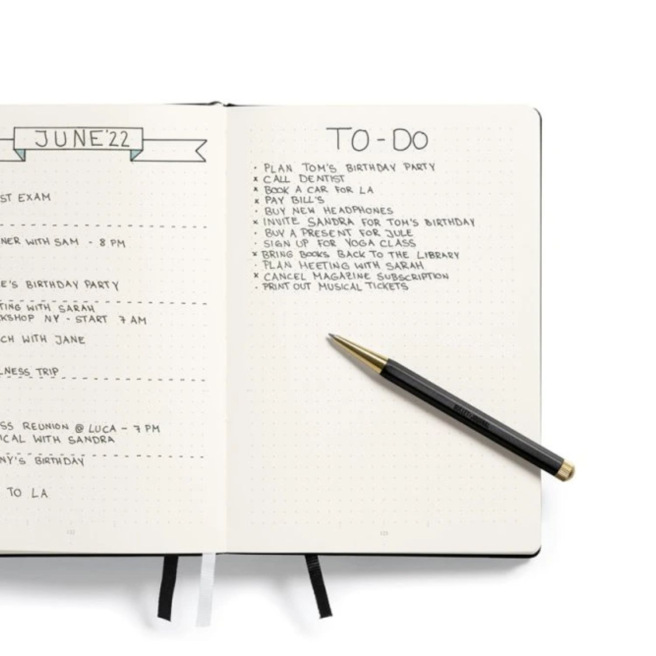 JUNE'22
ST EXAM
NER WITH SAM - 8 PM
E'S BIRTHDAY PARTY
TING WITH SARAH
KSHOP NY - START 7 AM
CH WITH JANE
LNESS TRIP
SS REUNION @ LUCA - 7 PM
ICAL WITH SANDRA
NY'S BIRTHDAY
TO LA
TO-DO
· PLAN TOM'S BIRTHDAY PARTY
x CALL DENTIST
x BOOK A CAR FOR LA
x PAY BILL'S
· BUY NEW HEADPHONES
x INVITE SANDRA FOR TOM'S BIRTHDAY
· BUY A PRESENT FOR JULE
· SIGN UP FOR YOGA CLASS
x BRING BOOKS BACK TO THE LIBRARY
· PLAN MEETING WITH SARAH
x CANCEL MAGAZINE SUBSCRIPTION
· PRINT OUT MUSICAL TICKETS